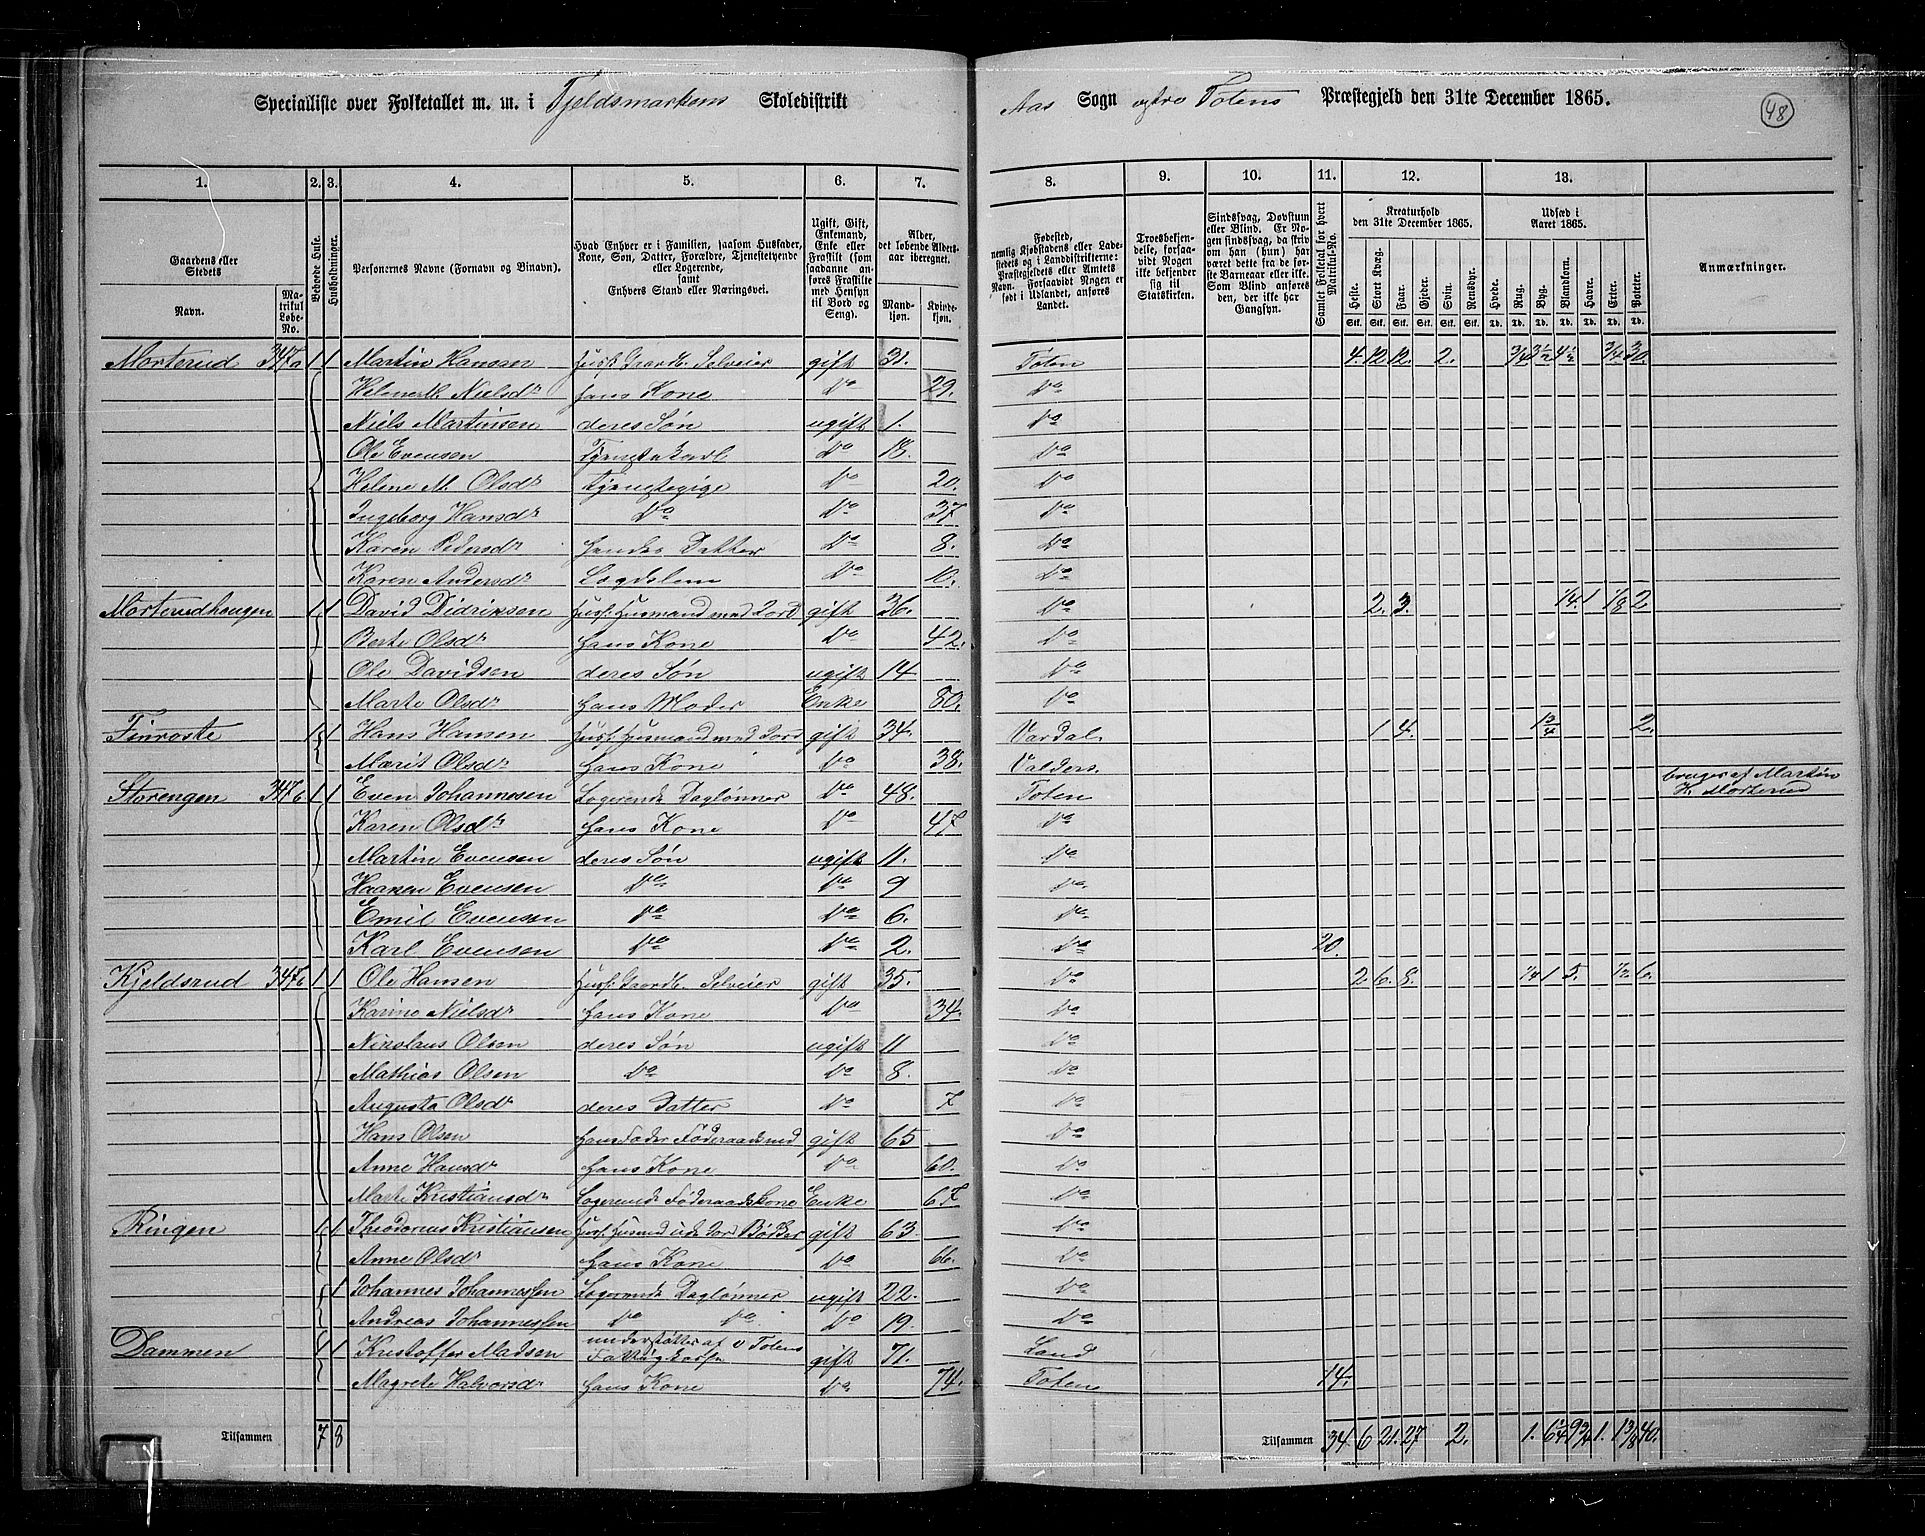 Specialliste over Folketallet m. m. i Fjeldsmarkens Skoledistrikt Aas Sogn østre Totens Præstegjeld den 31te December 1865.
48
1. 2. 3. 4. 5. 6. 7. 8. 9. 10. 11. 12. 13.
Gaardens eller Stedets
Navn.
Matrikul Løbe-No.
Beboede Huse.
Husholdninger.
Personernes Navne (Fornavn og Binavn).
Hvad Enhver er i Familien, saasom Husfader, Kone, Søn, Datter, Forældre, Tjenestetyende eller Logerende, samt Enhvers Stand eller Næringsvei.
Ugift, Gift, Enkemand, Enke eller Fraskilt (som saadanne anføres Fraskilte med Hensyn til Bord og Seng).
Alder, det løbende Alders-aar iberegnet.
Mandkjøn.
Kvindekjøn.
Fødested, nemlig Kjøbstadens eller Ladestedets og i Landdistrikterne: Præstegjeldets eller Amtets Navn. Forsaavidt Nogen er født i Udlandet, anføres Landet.
Troesbekjendelse, forsaavidt Nogen ikke bekjender sig til Statskirken.
Sindssvag, Døvstum eller Blind. Er Nogen sindssvag, da skriv om han (hun) har været dette fra de første Barneaar eller ikke. Som Blind anføres den, der ikke har Gangsyn.
Samlet Folketal for hvert Matrikul-No.
Kreaturhold den 31te December 1865.
Heste. Stort Kvæg. Faar. Gjeder. Svin. Rensdyr.
Stk. Stk. Stk. Stk. Stk. Stk.
Udsæd i Aaret 1865.
Hvede. Rug. Byg. Blandkorn. Havre. Erter. Poteter.
Td. Td. Td. Td. Td. Td. Td.
Anmærkninger.
Morterud 347a 1 1 Martin Hansen Husf. Gaardb. Selveier gift 31. Toten 4. 12. 12. 2. 3/4 3 1/2 4 1/2 3/4 30.
Helene M. Nielsdr hans Kone Do 29. Do
Niels Martinsen deres Søn ugift 1. Do
Ole Evensen Tjenestekarl Do 18. Do
Helene M. Olsdr Tjenestepige Do 20. Do
Ingeborg Hansdr Do Do 37 Do
Karen Pedersdr hendes Datter Do 8. Do
Karen Andersdr Lægdslem Do 10. Do
Morterudhaugen 1 1 David Didriksen Husf. Husmand med Jord gift 36. Do 2. 3. 1/4. 1 1/8 2.
Berte Olsdr hans Kone Do 42. Do
Ole Davidsen deres Søn ugift 14 Do
Marte Olsdr hans Moder Enke 80. Do
Finroste 1 1 Hans Hansen Husf. Husmand med Jord gift 34. Vardal. 1 4. 2.
Marit Olsdr hans Kone Do 38. Valders.
Storengen 347b 1 1 Even Johannesen Logerende Daglønner Do 48. Toten bruges af Martin H. Morterud
Karen Olsdr hans Kone Do 47 Do
Martin Evensen deres Søn ugift 11. Do
Haanen Evensen Do Do 9 Do
Emil Evensen Do Do 6. Do
Karl Evensen Do Do 2. Do 20.
Kjeldsrud 1 1 Ole Hansen Husf. Gaardb. Selveier gift 35. Do 2 6. 8. 1/4 1 5. 1/2 6.
Karine Nielsdr hans Kone Do 34. Do
Nikolaus Olsen deres Søn ugift 11 Do
Mathias Olsen Do Do 8. Do
Augusta Olsdr deres Datter Do 7 Do
Hans Olsen hans Fader Føderaadsmd gift 65 Do
Anne Hansdr hans Kone Do 60. Do
Marte Kristiansdr Logerende Føderaadskone Enke 67 Do
Ringen 1 1 Theodorius Kristiansen Husf. Husmd uden Jord Bødker gift 63. Do
Anne Olsdr hans Kone Do 66. Do
1 Johannes Johannessen Logerende Daglønner ugift 22. Do
Andreas Johannessen Do Do Do 19. Do
Dammen 1 1 Kristoffer Madsen understøttes af ø Totens Fattigkasse gift 71. Land
Magrete Halvorsdr hans Kone Do 74. Toten 14.
Tilsammen 7 8 Tilsammen 34 6 21. 27 2. 1. 6 1/4 9 3/4 1. 1 3/8 40.